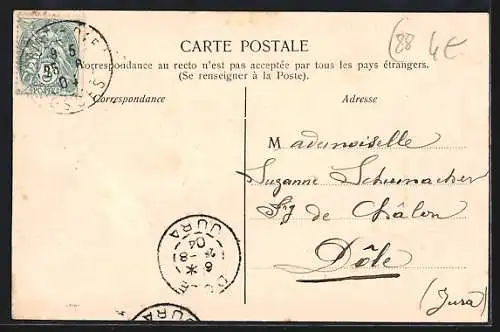 CARTE POSTALE
(88 4E
Correspondance au recto n'est pas acceptée par tous les pays étrangers.
(Se renseigner à la Poste).
Correspondance
Adresse
Mademoiselle
Suzanne Schumacher
Fg de Châlon
Dôle
(Jura)
DOLE
JURA
6 * -8
04
JURA